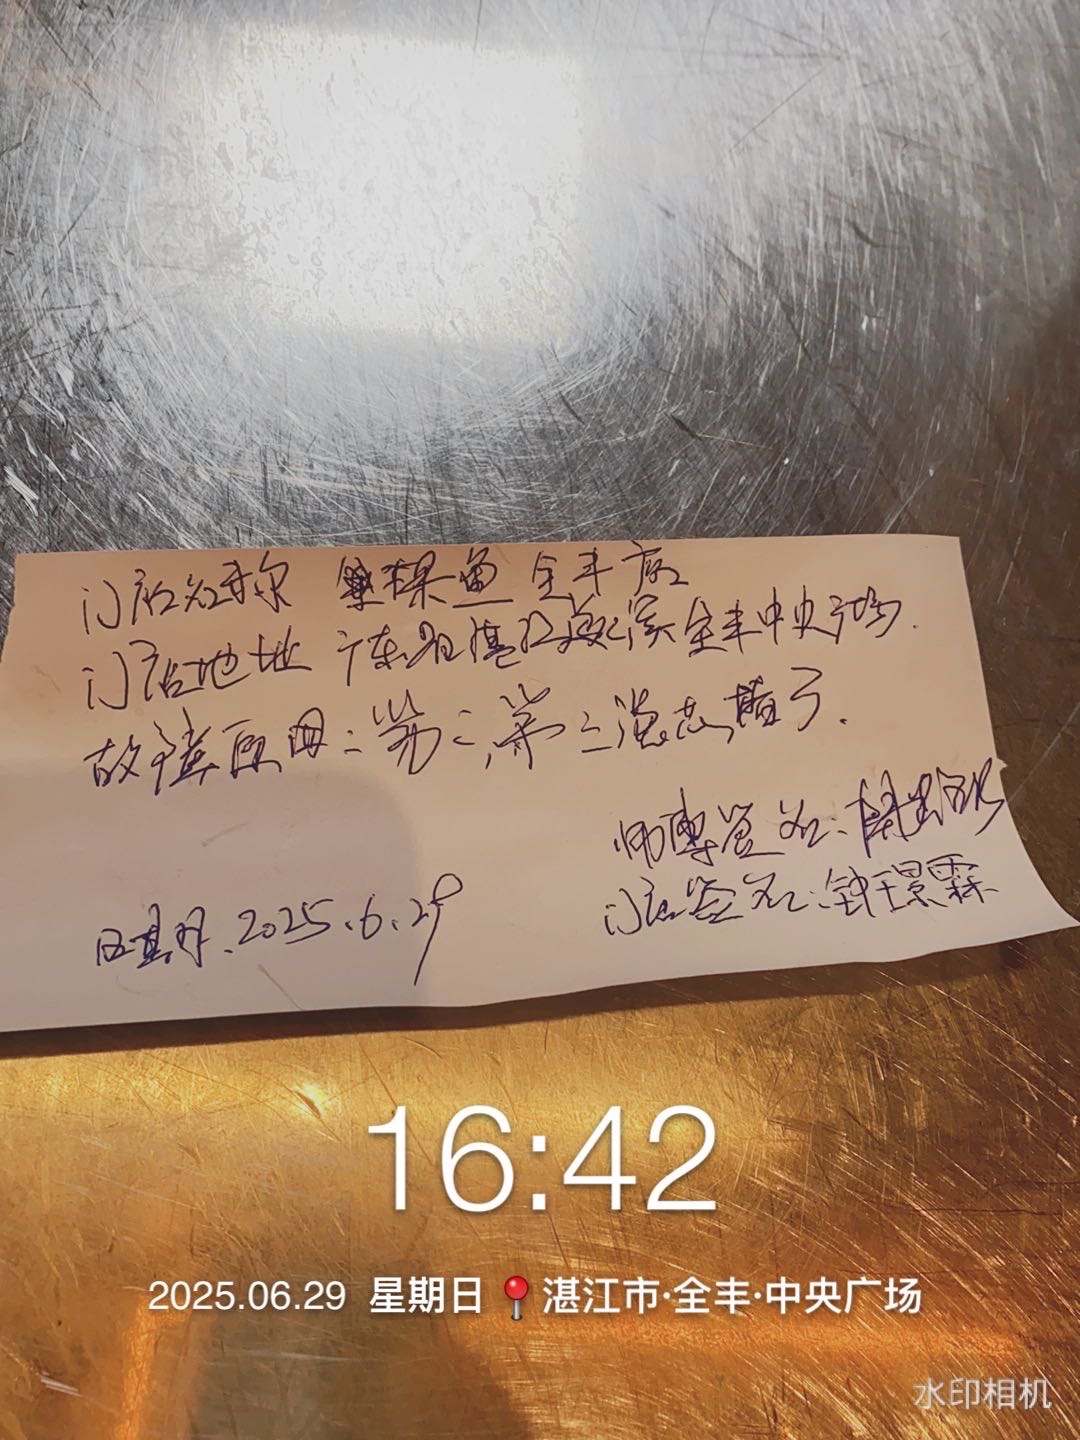 门店名称 鱼 全丰店
门店地址 广东省湛江遂溪全丰中央广场.
故障原因:第二,第三滤芯堵了.
师傅签名:
门店签名:钟璟霖
日期.2025.6.29
16:42
2025.06.29 星期日 📍湛江市·全丰·中央广场
水印相机